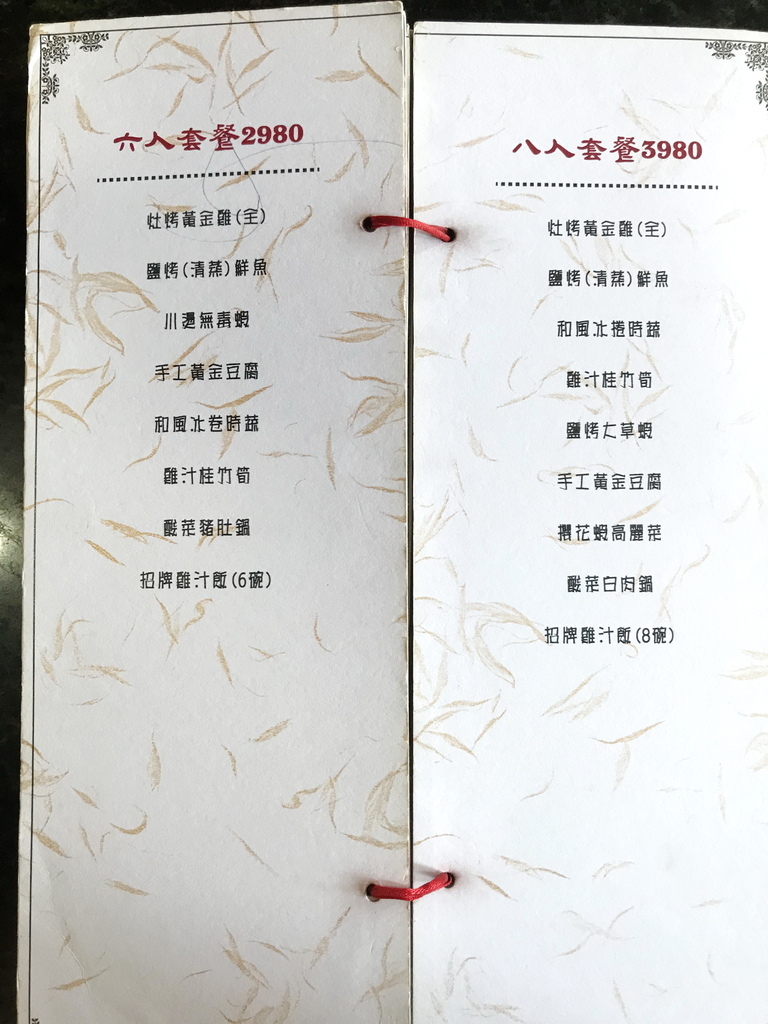 六人套餐2980
灶烤黃金雞(全)
鹽烤(清蒸)鮮魚
川燙無毒蝦
手工黃金豆腐
和風冰卷時蔬
雞汁桂竹筍
酸菜豬肚鍋
招牌雞汁飯(6碗)
八人套餐3980
灶烤黃金雞(全)
鹽烤(清蒸)鮮魚
和風冰捲時蔬
雞汁桂竹筍
鹽烤大草蝦
手工黃金豆腐
櫻花蝦高麗菜
酸菜白肉鍋
招牌雞汁飯(8碗)